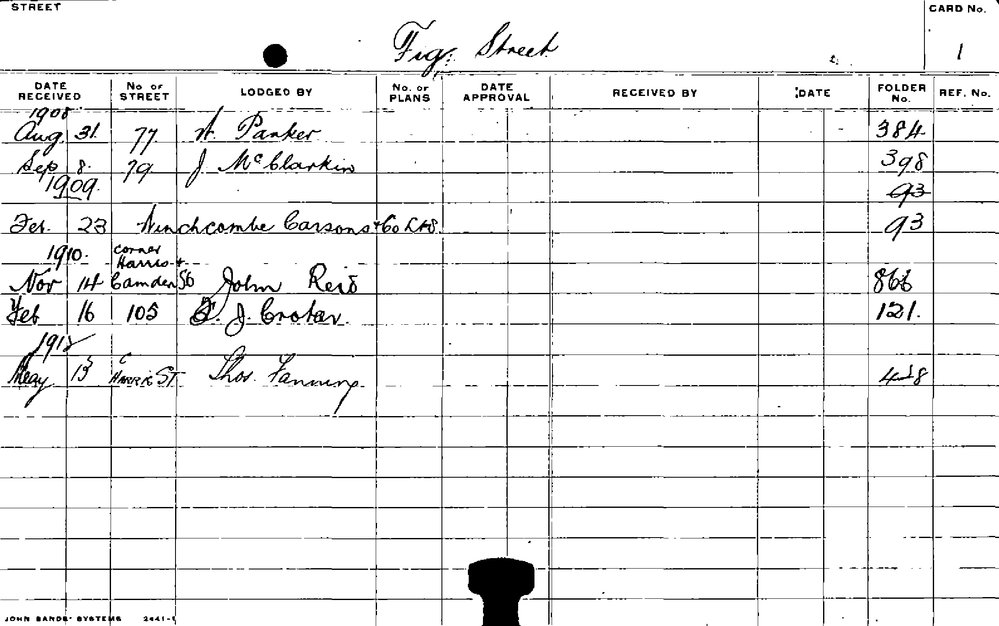 STREET
CARD No.
Fig: Street
1
DATE RECEIVED No OF STREET LODGED BY No. OF PLANS DATE APPROVAL RECEIVED BY DATE FOLDER No. REF. No.
1908
Aug 31 77 Parker 384
Sep 8 79 J McClarkin 398
1909 93
Feb. 23 Winchcombe Carsons & Co Ltd 93
1910. corner
Harris +
Nov 14 Camden St John Reid 866
Feb 16 105 J. 121.
May 13 c HARRIS ST. Thos. Fanning
JOHN SANDS' SYSTEMS 2441-1